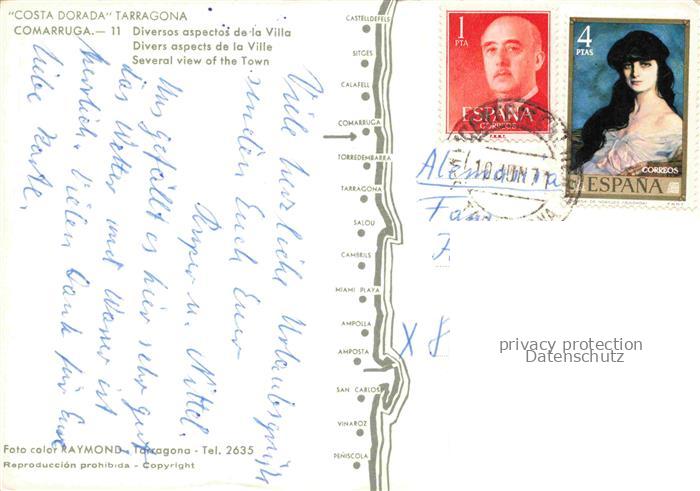 "COSTA DORADA" TARRAGONA
COMARRUGA.— 11 Diversos aspectos de la Villa
Divers aspects de la Ville
Several view of the Town
Viele herzliche Urlaubsgrüße
senden Euch Eure
u. Nittel.
Uns gefällt es hier sehr gut,
das Wetter und Wasser ist
herrlich. Vielen Dank für Eure
liebe Karte.
Foto color RAYMOND. Tarragona - Tel. 2635
Reproducción prohibida - Copyright
CASTELLDEFELS
SITGES
CALAFELL
COMARRUGA
TORREDEMBARRA
TARRAGONA
SALOU
CAMBRILS
MIAMI PLAYA
AMPOLLA
AMPOSTA
SAN CARLOS
VINAROZ
PEÑISCOLA
1
PTA
ESPAÑA
CORREOS
F.N.M.T.
4
PTAS
CORREOS
ESPAÑA
10 JUN 71
Alemania
X 8
privacy protection
Datenschutz